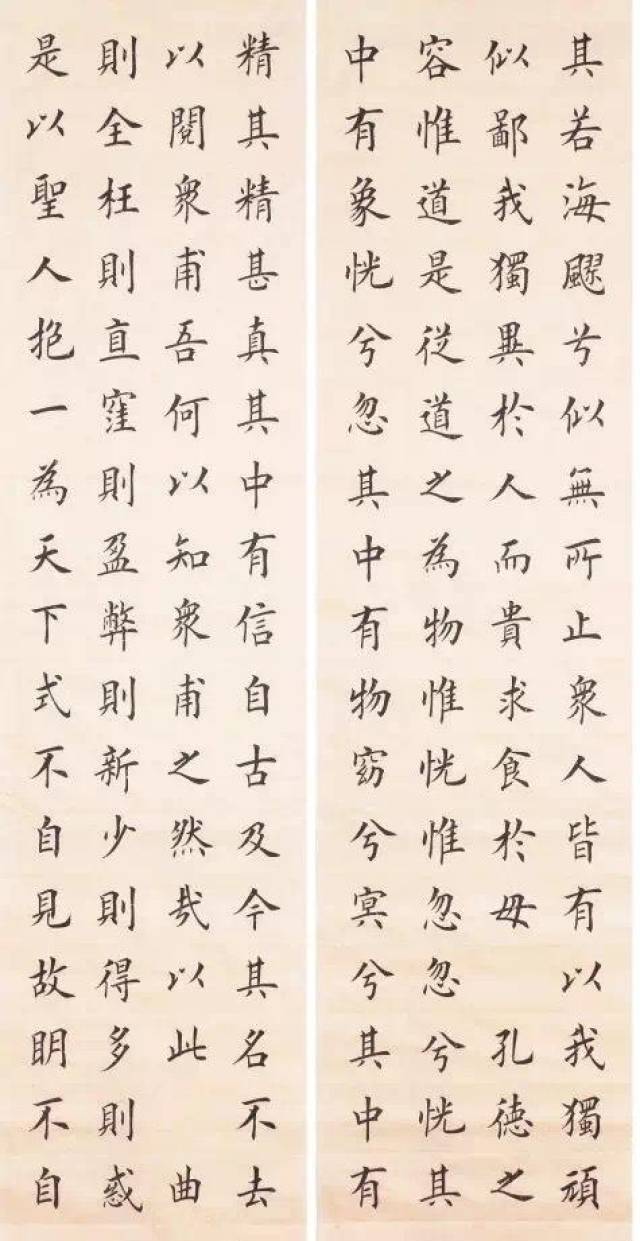 其若海飂兮似無所止衆人皆有以我獨頑
似鄙我獨異於人而貴求食於母孔德之
容惟道是從道之為物惟恍惟忽忽兮恍其
中有象恍兮忽其中有物窈兮冥兮其中有
精其精甚真其中有信自古及今其名不去
以閱衆甫吾何以知衆甫之然哉以此曲
則全枉則直窪則盈弊則新少則得多則惑
是以聖人抱一為天下式不自見故明不自